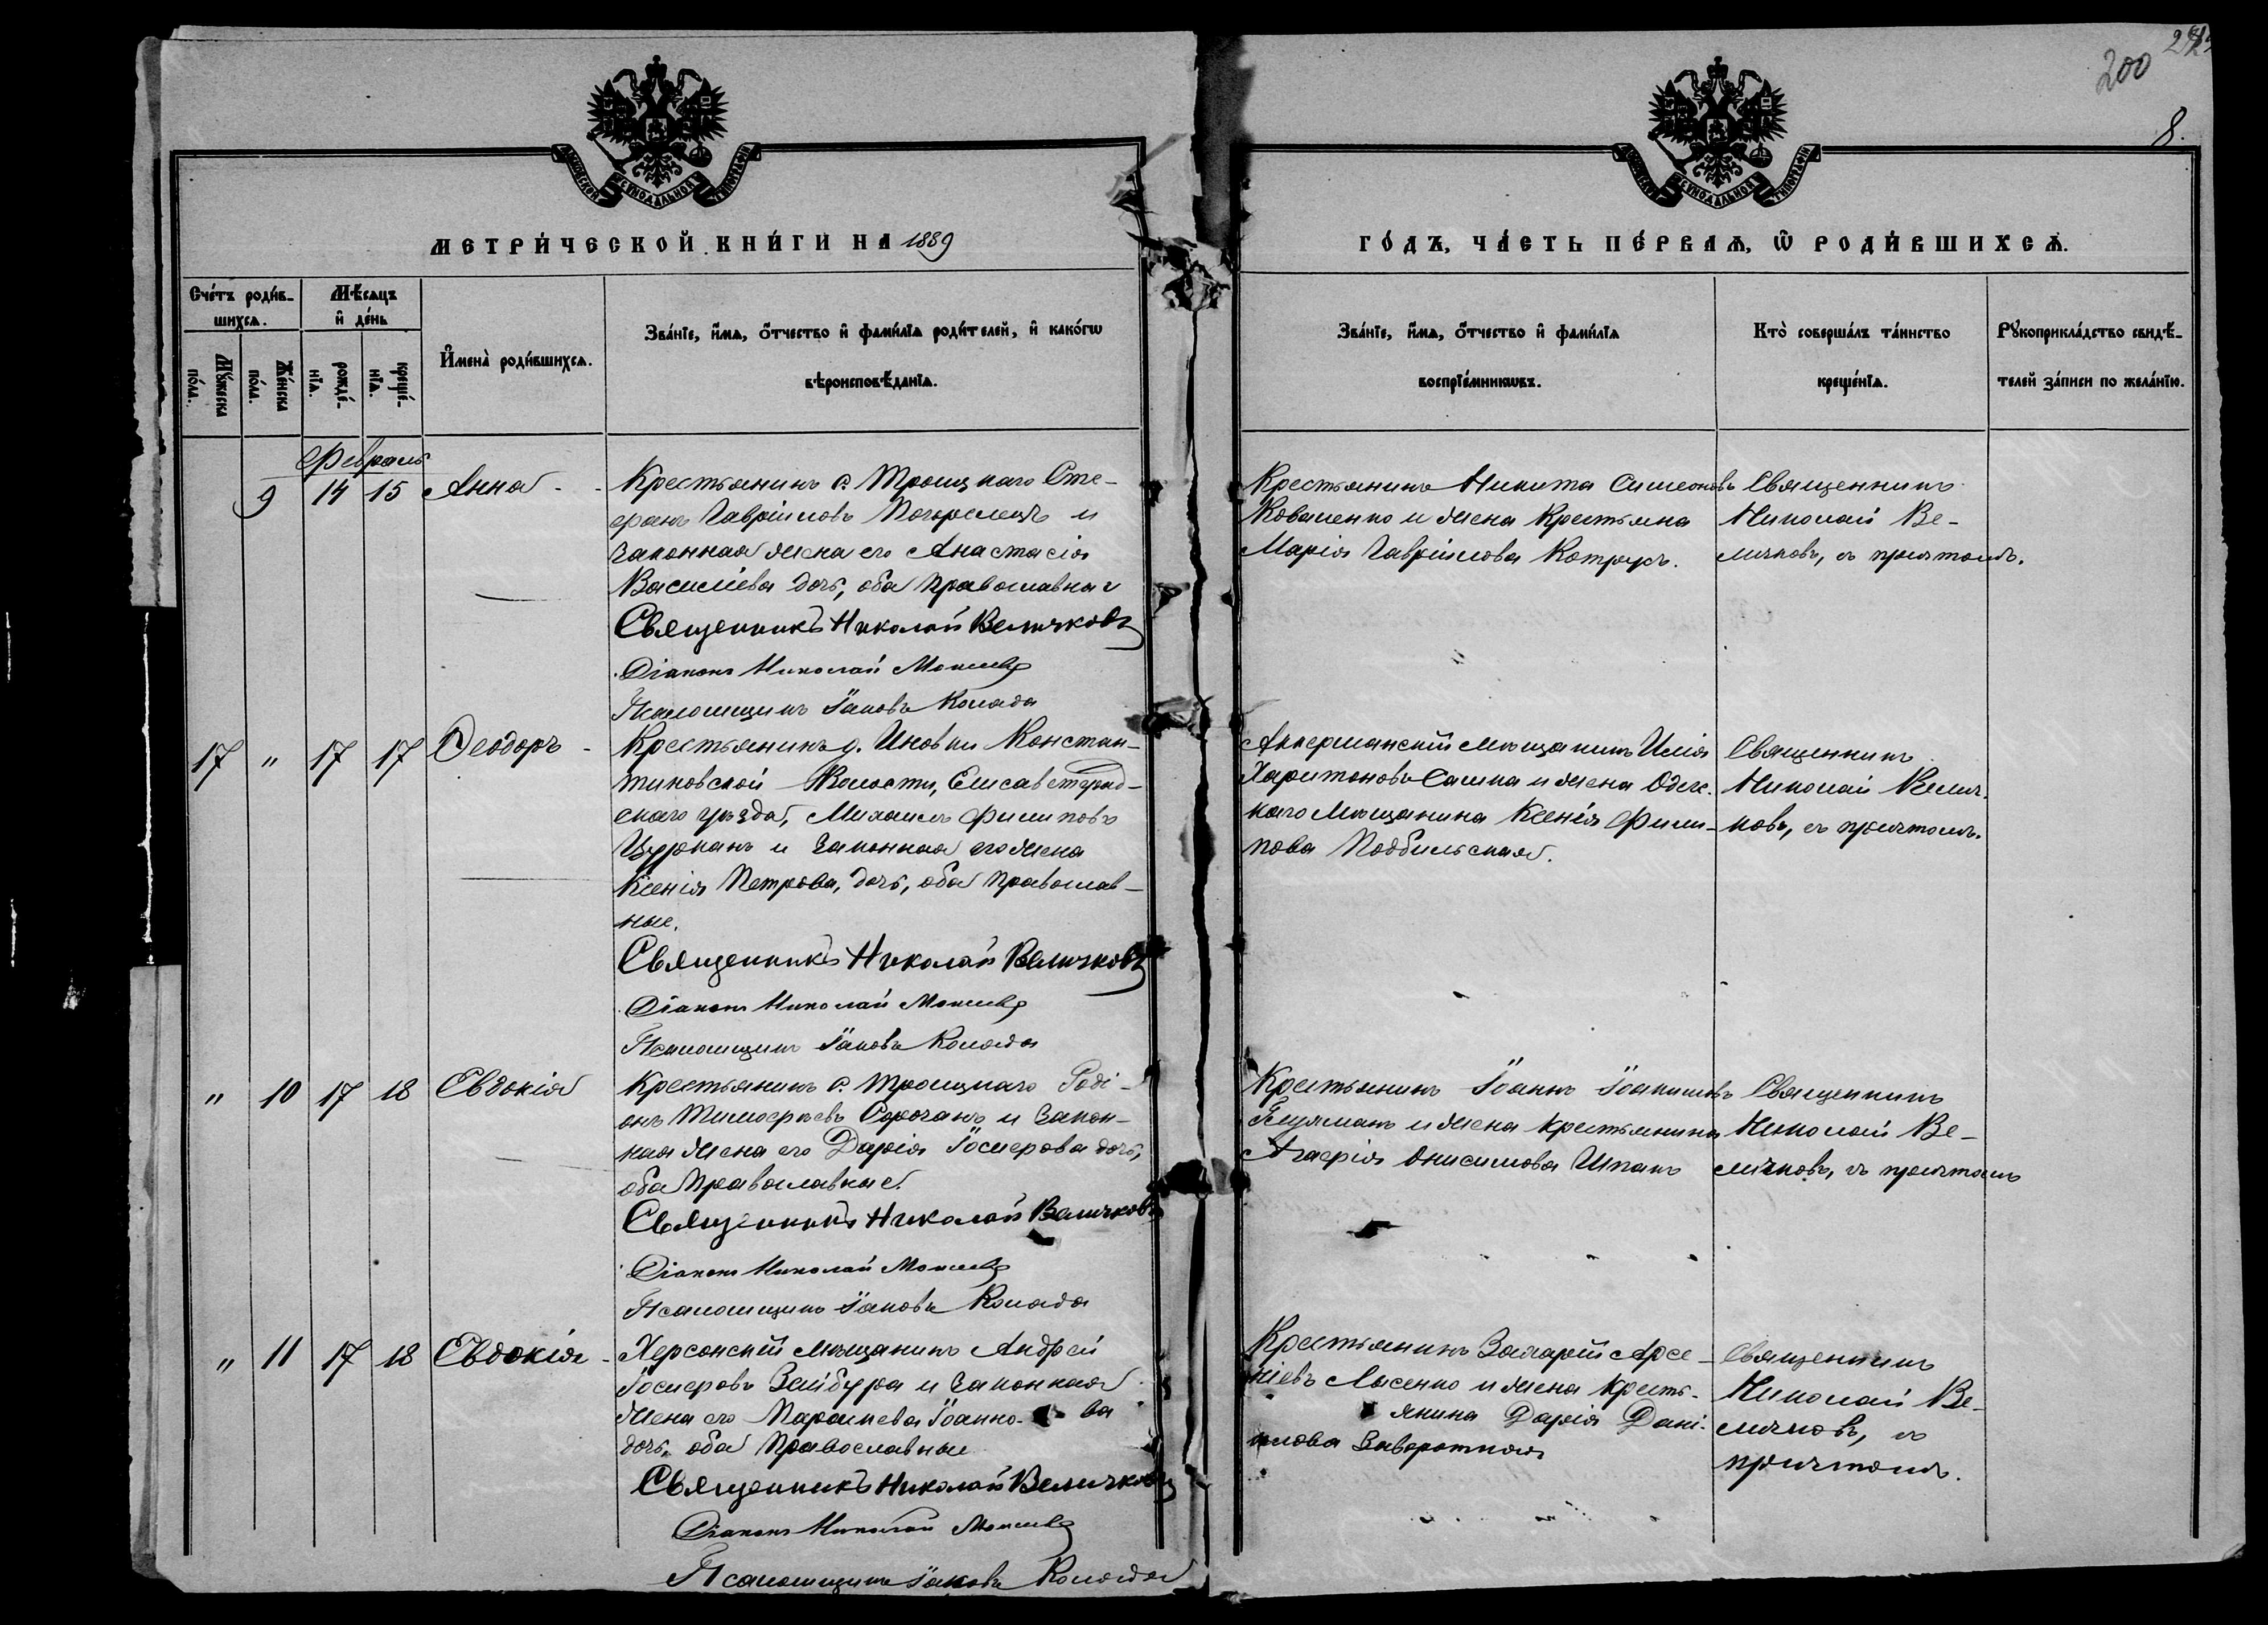 200
8.
МОСКОВСКОЙ СѴНОДАЛЬНОЙ ТИПОГРАФІИ
МОСКОВСКОЙ СѴНОДАЛЬНОЙ ТИПОГРАФІИ
МЕТРИ́ЧЕСКОЙ КНИ́ГИ НА 1889
ГО́ДЪ, ЧА́СТЬ ПЕ́РВАѦ, Ѿ РОДИ́ВШИХСѦ.
Сче́тъ роди́в-
шихсѧ.
Му́жеска по́ла.
Же́нска по́ла.
Мѣ́сѧцъ
и҆ де́нь
рожде́-
нїѧ.
креще́-
нїѧ.
И҆мена̀ роди́вшихсѧ.
Зва́нїе, и҆́мѧ, ѻ҆́тчество и҆ фами́лїѧ роди́телей, и҆ како́гѡ
вѣроисповѣ́данїѧ.
Зва́нїе, и҆́мѧ, ѻ҆́тчество и҆ фами́лїѧ
воспрїе́мникѡвъ.
Кто̀ соверша́лъ та́инство
креще́нїѧ.
Рꙋкоприкла́дство свидѣ́-
телей за́писи по жела́нїю.
Февраль
9 14 15 Анна
Крестьянинъ с. Троицкаго Сте-
фанъ Гавріиловъ Погорелецъ и
законная жена его Анастасія
Василіева дочь, оба православные
Священникъ Николай Величковъ
Діаконъ Николай
Псаломщикъ Іаковъ Колода
Крестьянинъ Никита Симеоновъ
Коваленко и жена крестьяна
Марія Гавріилова Котрусъ.
Священникъ
Николай Ве-
личковъ, съ причтомъ.
17 " 17 17 Ѳеодоръ
Крестьянинъ д. Ивовки Констан-
тиновской Волости, Елисаветград-
скаго уѣзда, Михаилъ Филиповъ
Цурканъ и законная его жена
Ксенія Петрова, дочь, оба православ-
ные.
Священникъ Николай Величковъ
Діаконъ Николай
Псаломщикъ Іаковъ Колода
Аккерманскій мѣщанинъ Илія
Харитоновъ Сашка и жена Одес.
каго мѣщанина Ксенія Фили-
пова Подбильская.
Священникъ
Николай Велич.
ковъ, съ причтомъ.
" 10 17 18 Евдокія
Крестьянинъ с. Троицкаго Роді-
онъ Тимоѳеевъ Сорочанъ и закон-
ная жена его Дарія Іосифова дочь,
оба православные.
Священникъ Николай Величковъ
Діаконъ Николай
Псаломщикъ Іаковъ Колода
Крестьянинъ Іоаннъ
и жена крестьянина
Агафія Онисимова Шпакъ
Священникъ
Николай Ве-
личковъ, съ причтомъ
" 11 17 18 Евдокія
Херсонскій мѣщанинъ Андрей
Іосифовъ и законная
жена его Параскева Іоанно-ва
дочь, оба православные
Священникъ Николай Величковъ
Діаконъ Николай
Псаломщикъ Іаковъ Колода
Крестьянинъ Захарій Арсе-
ніевъ Лысенко и жена кресть-
янина Дарія Дані-
илова Заворотная
Священникъ
Николай Ве-
личковъ, съ
причтомъ.